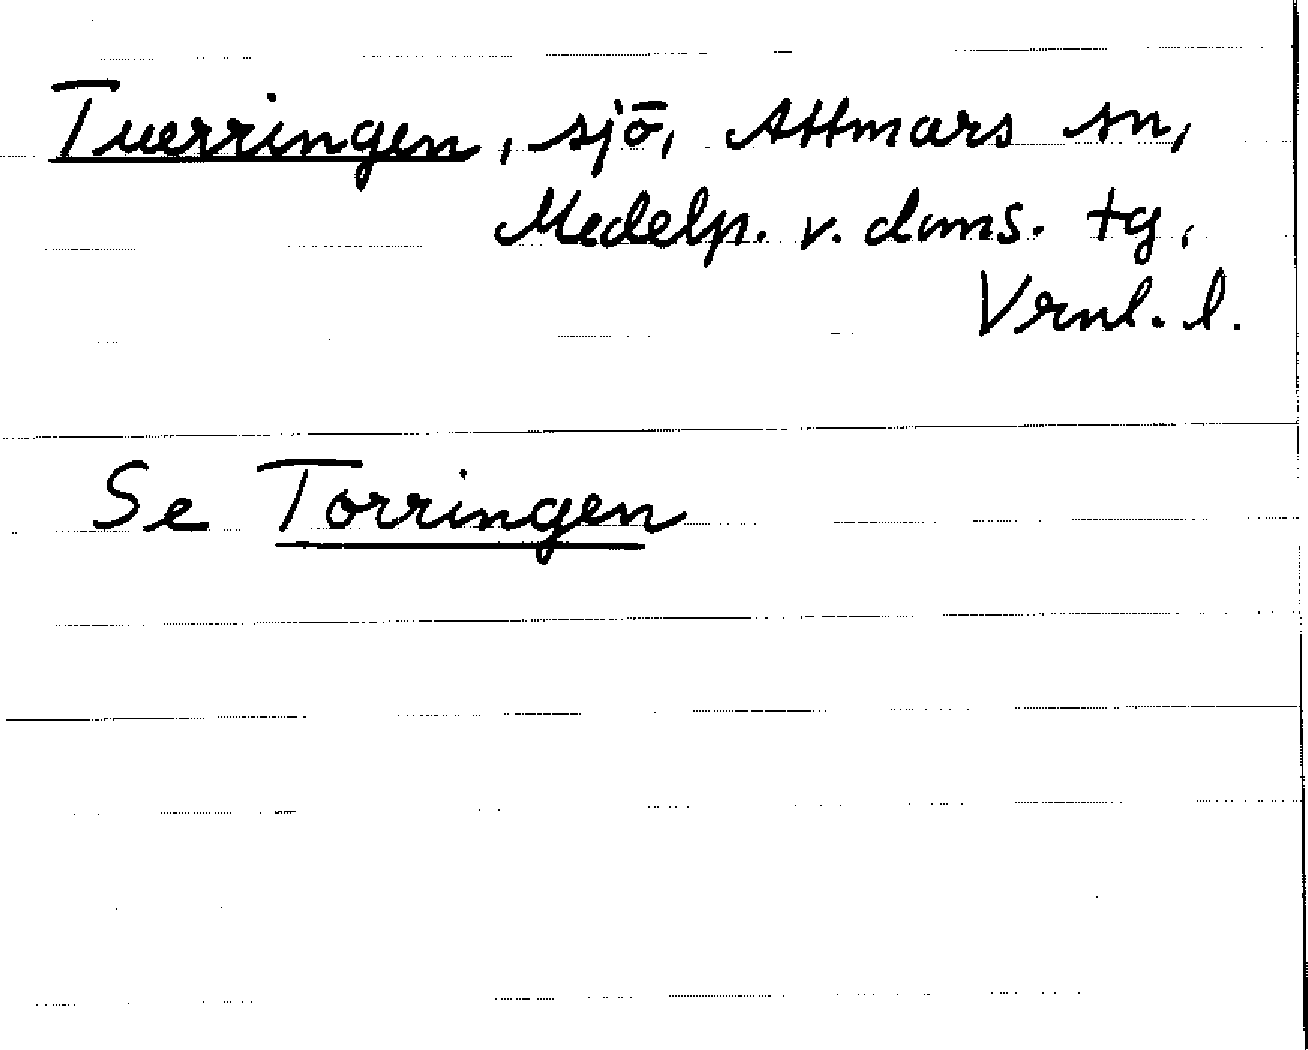 Tuerringen, sjö, Attmars sn,
Medelp. v. doms. tg,
Vrnl. l.
Se Torringen